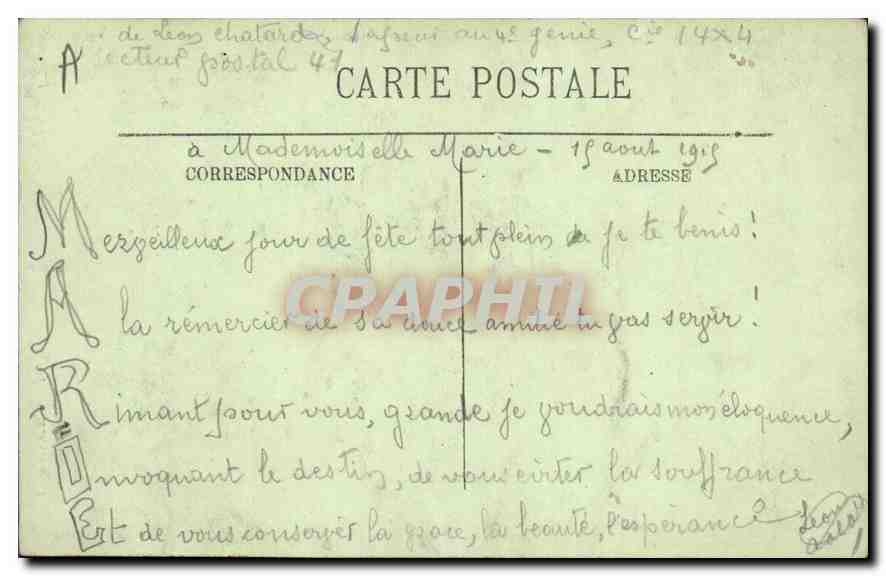 de Leon chatardon, Sapeur au 4e genie, Cie 14x4
A secteur postal 47
CARTE POSTALE
à Mademoiselle Marie - 15 aout 1915
CORRESPONDANCE
ADRESSE
Merveilleux jour de fête tout plein je te benis!
CPAPHIL
A la rémercier de sa douce amitié tu vas servir!
Rimant pour vous, grande je voudrais mon éloquence,
Invoquant le destin, de vous eviter la souffrance
Et de vous conserver la grace, la beauté, l'espérance
Leon